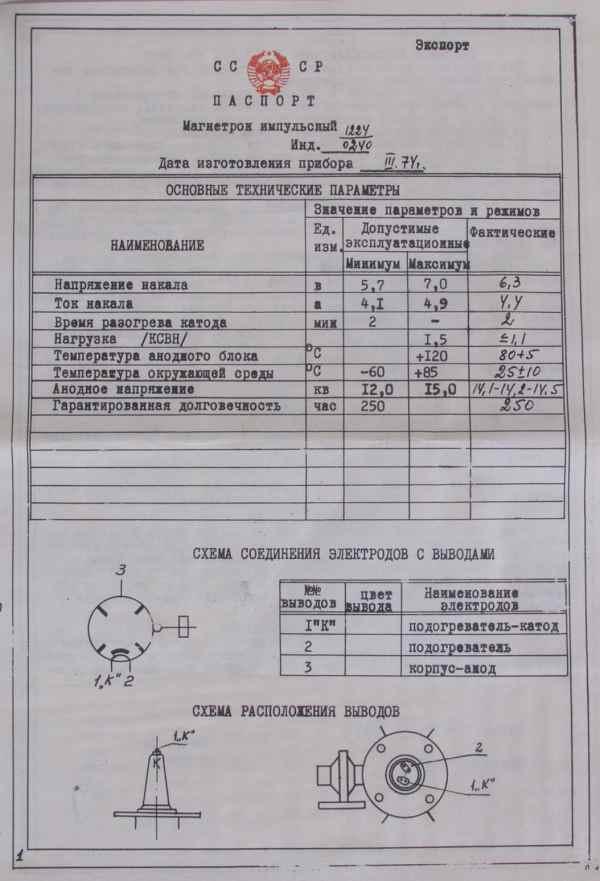 Экспорт
СС СР
ПАСПОРТ
Магнетрон импульсный 1224
Инд. 0240
Дата изготовления прибора III.74г.
ОСНОВНЫЕ ТЕХНИЧЕСКИЕ ПАРАМЕТРЫ
НАИМЕНОВАНИЕ Ед. изм. Значение параметров и режимов
Допустимые эксплуатационные Фактические
Минимум Максимум
Напряжение накала в 5,7 7,0 6,3
Ток накала а 4,1 4,9 4,4
Время разогрева катода мин 2 - 2
Нагрузка /КСВН/ 1,5 ≤1,1
Температура анодного блока °С +120 80+5
Температура окружающей среды °С -60 +85 25±10
Анодное напряжение кв 12,0 15,0 14,1-14,2-14,5
Гарантированная долговечность час 250 250
СХЕМА СОЕДИНЕНИЯ ЭЛЕКТРОДОВ С ВЫВОДАМИ
3
1„К" 2
№№ выводов цвет вывода Наименование электродов
I"К" подогреватель-катод
2 подогреватель
3 корпус-анод
СХЕМА РАСПОЛОЖЕНИЯ ВЫВОДОВ
1„К"
К
2
1„К"
1